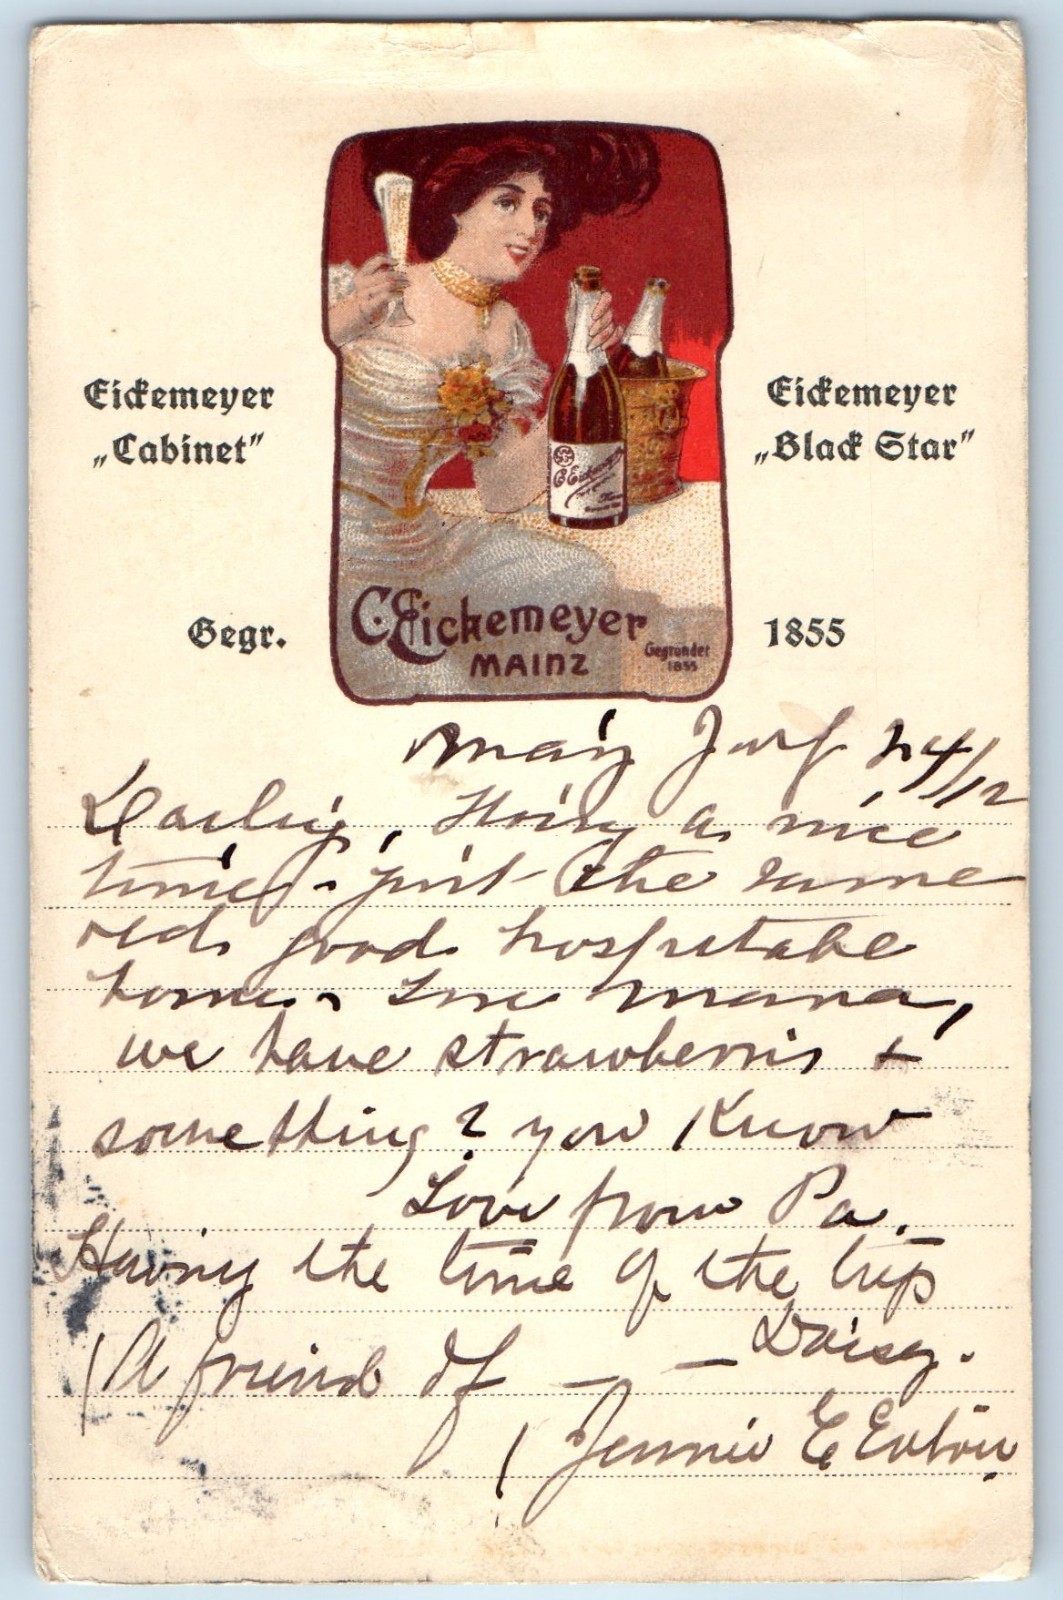 Eickemeyer
„Cabinet"
Eickemeyer
„Black Star"
C. Eickemeyer
C. Eickemeyer
MAINZ
Gegrundet
1855
Gegr.
1855
24/12
Darling, Having a nice
time - just the same
old good hospitable
home - mama,
we have strawberris +
something? you Know
Love from Pa.
Having the time of the trip
Daisy.
(A friend of
(Jennie E